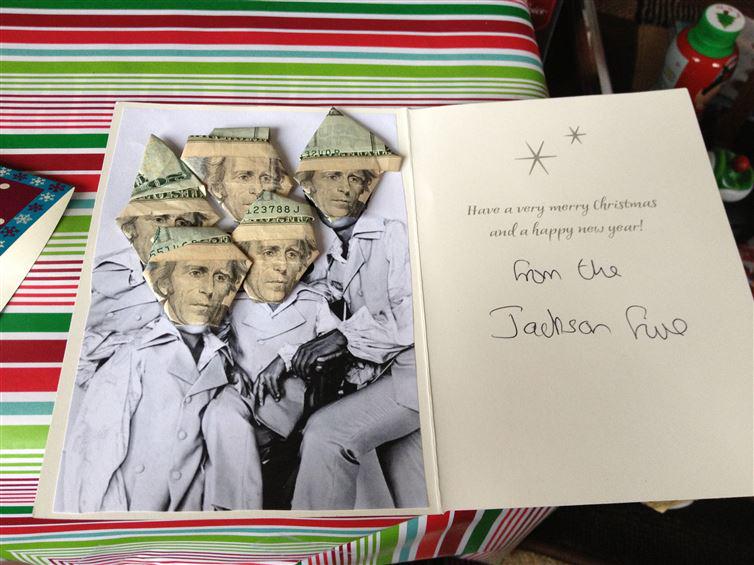 123788J
Have a very merry Christmas
and a happy new year!
from the
Jackson Five